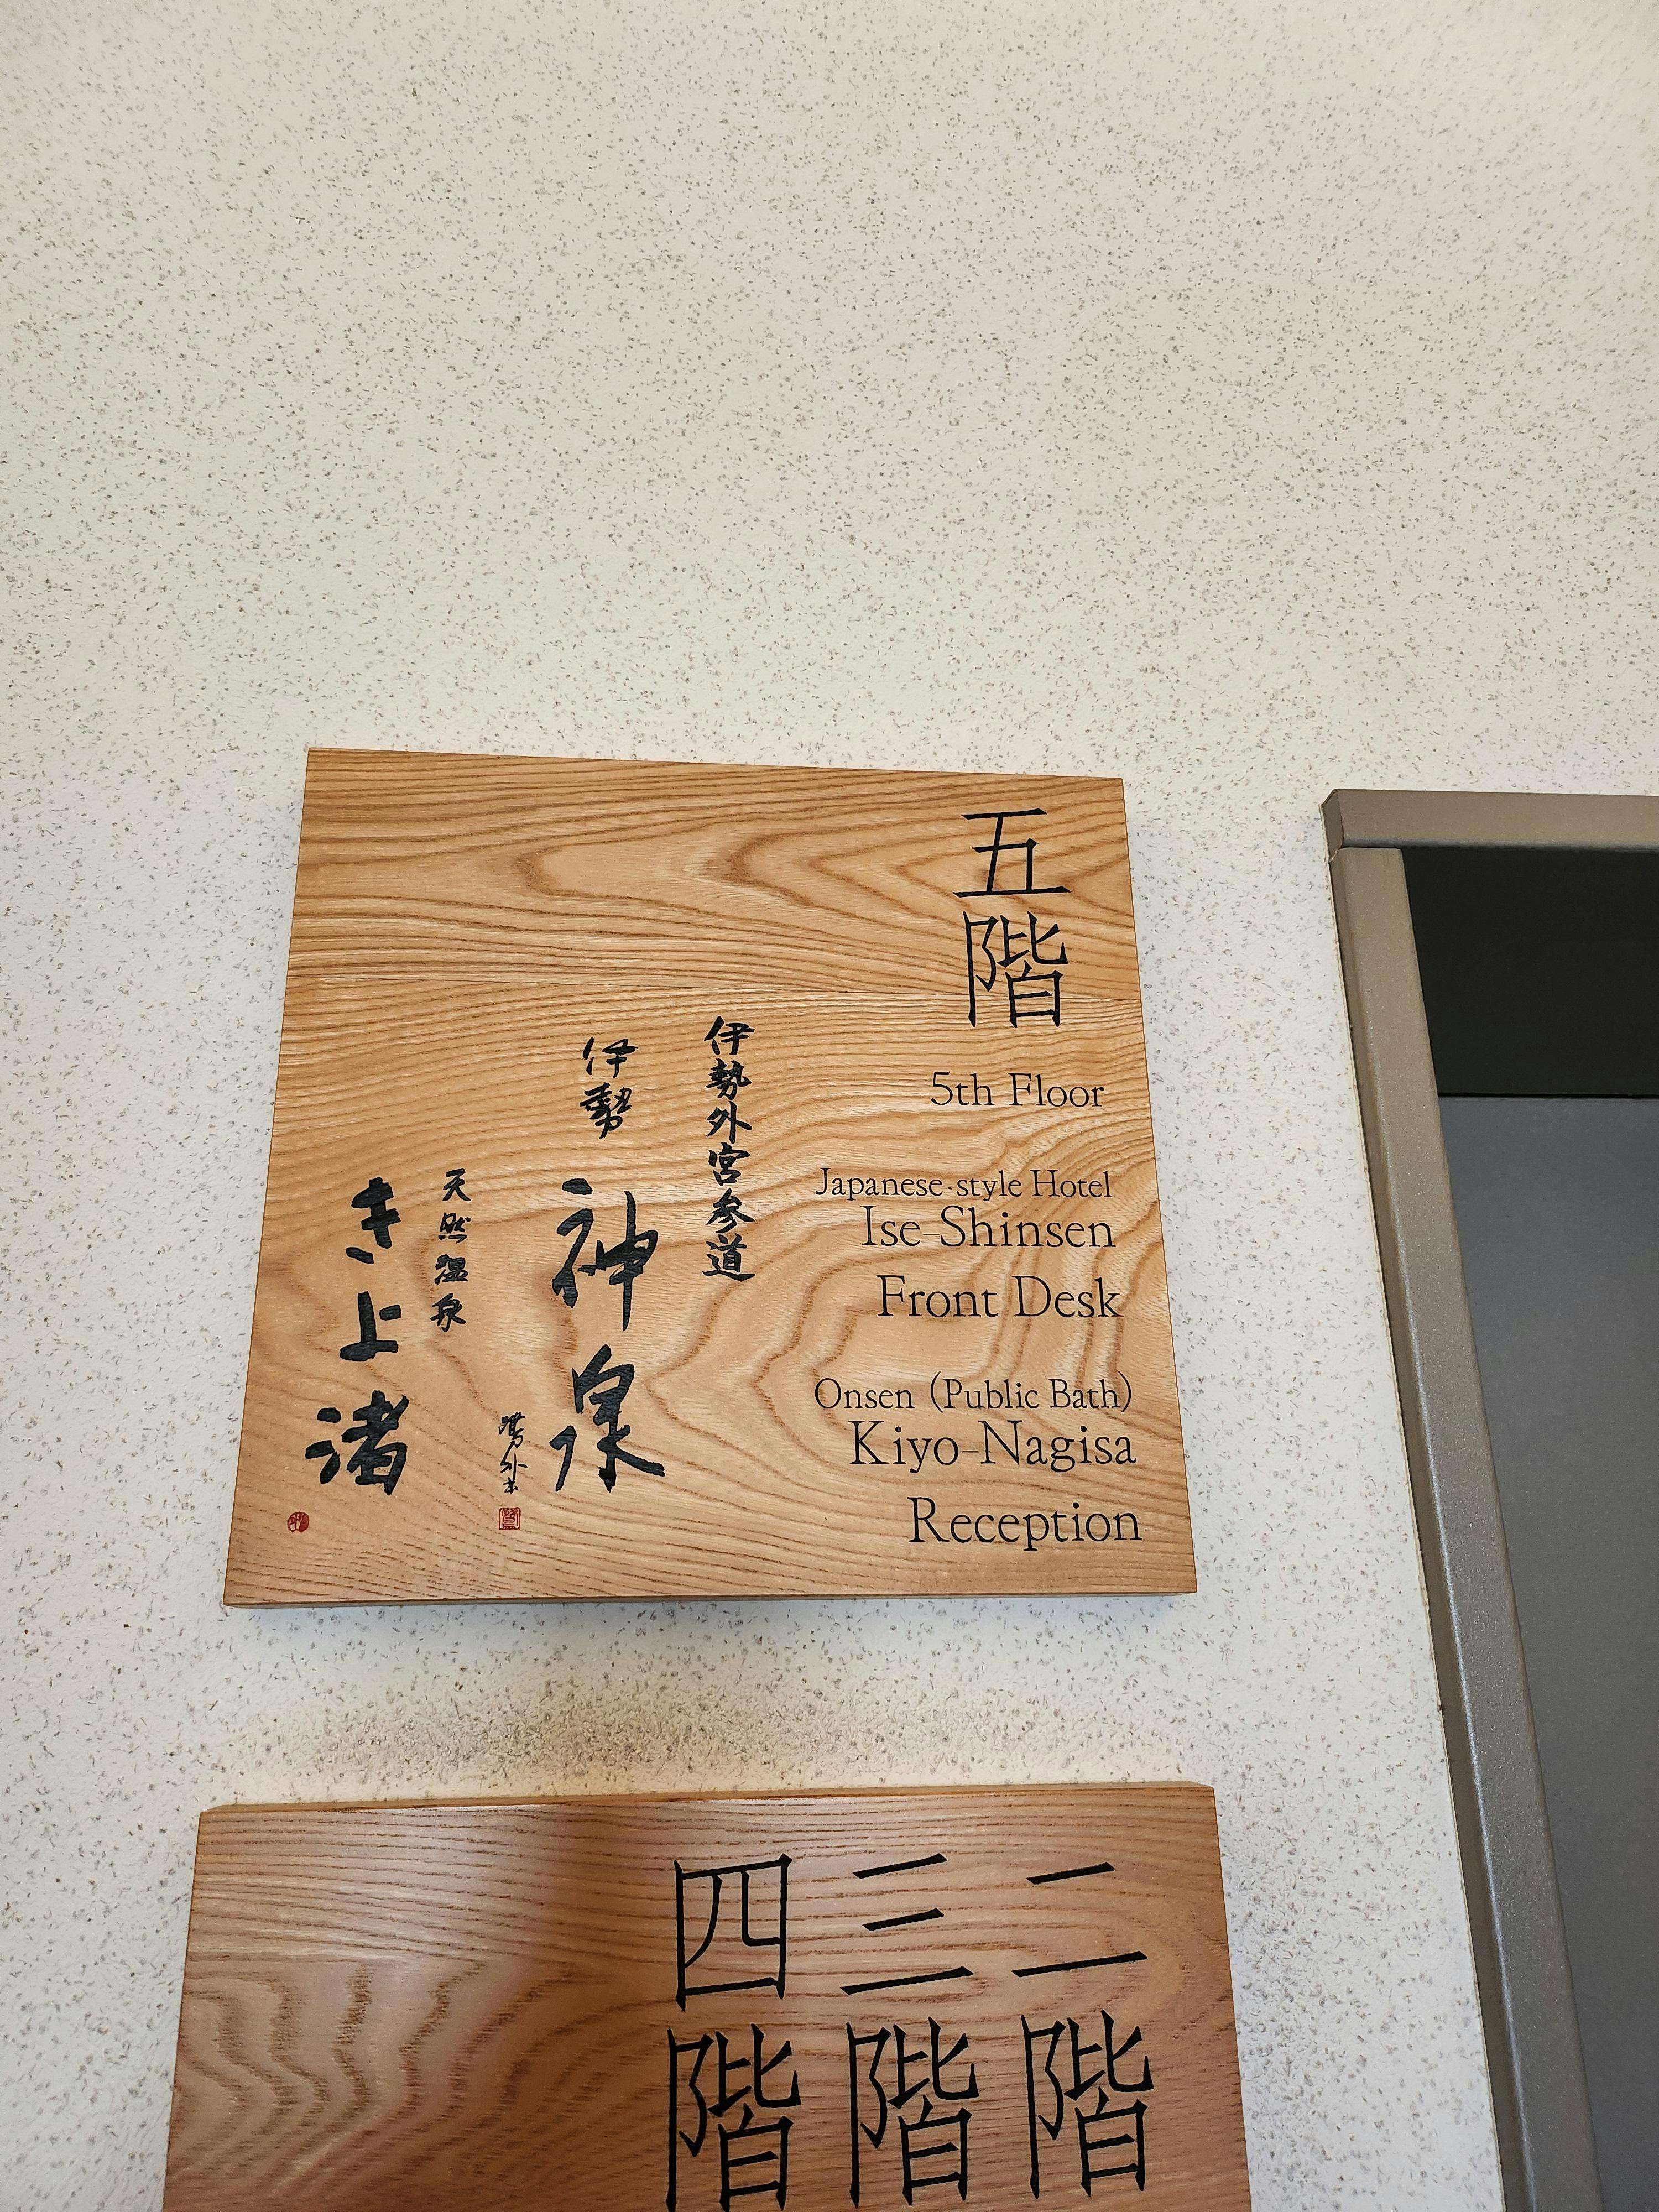 五階
5th Floor
Japanese-style Hotel
Ise-Shinsen
Front Desk
Onsen (Public Bath)
Kiyo-Nagisa
Reception
伊勢外宮参道
伊勢
神泉
天然温泉
き上渚
二階
三階
四階